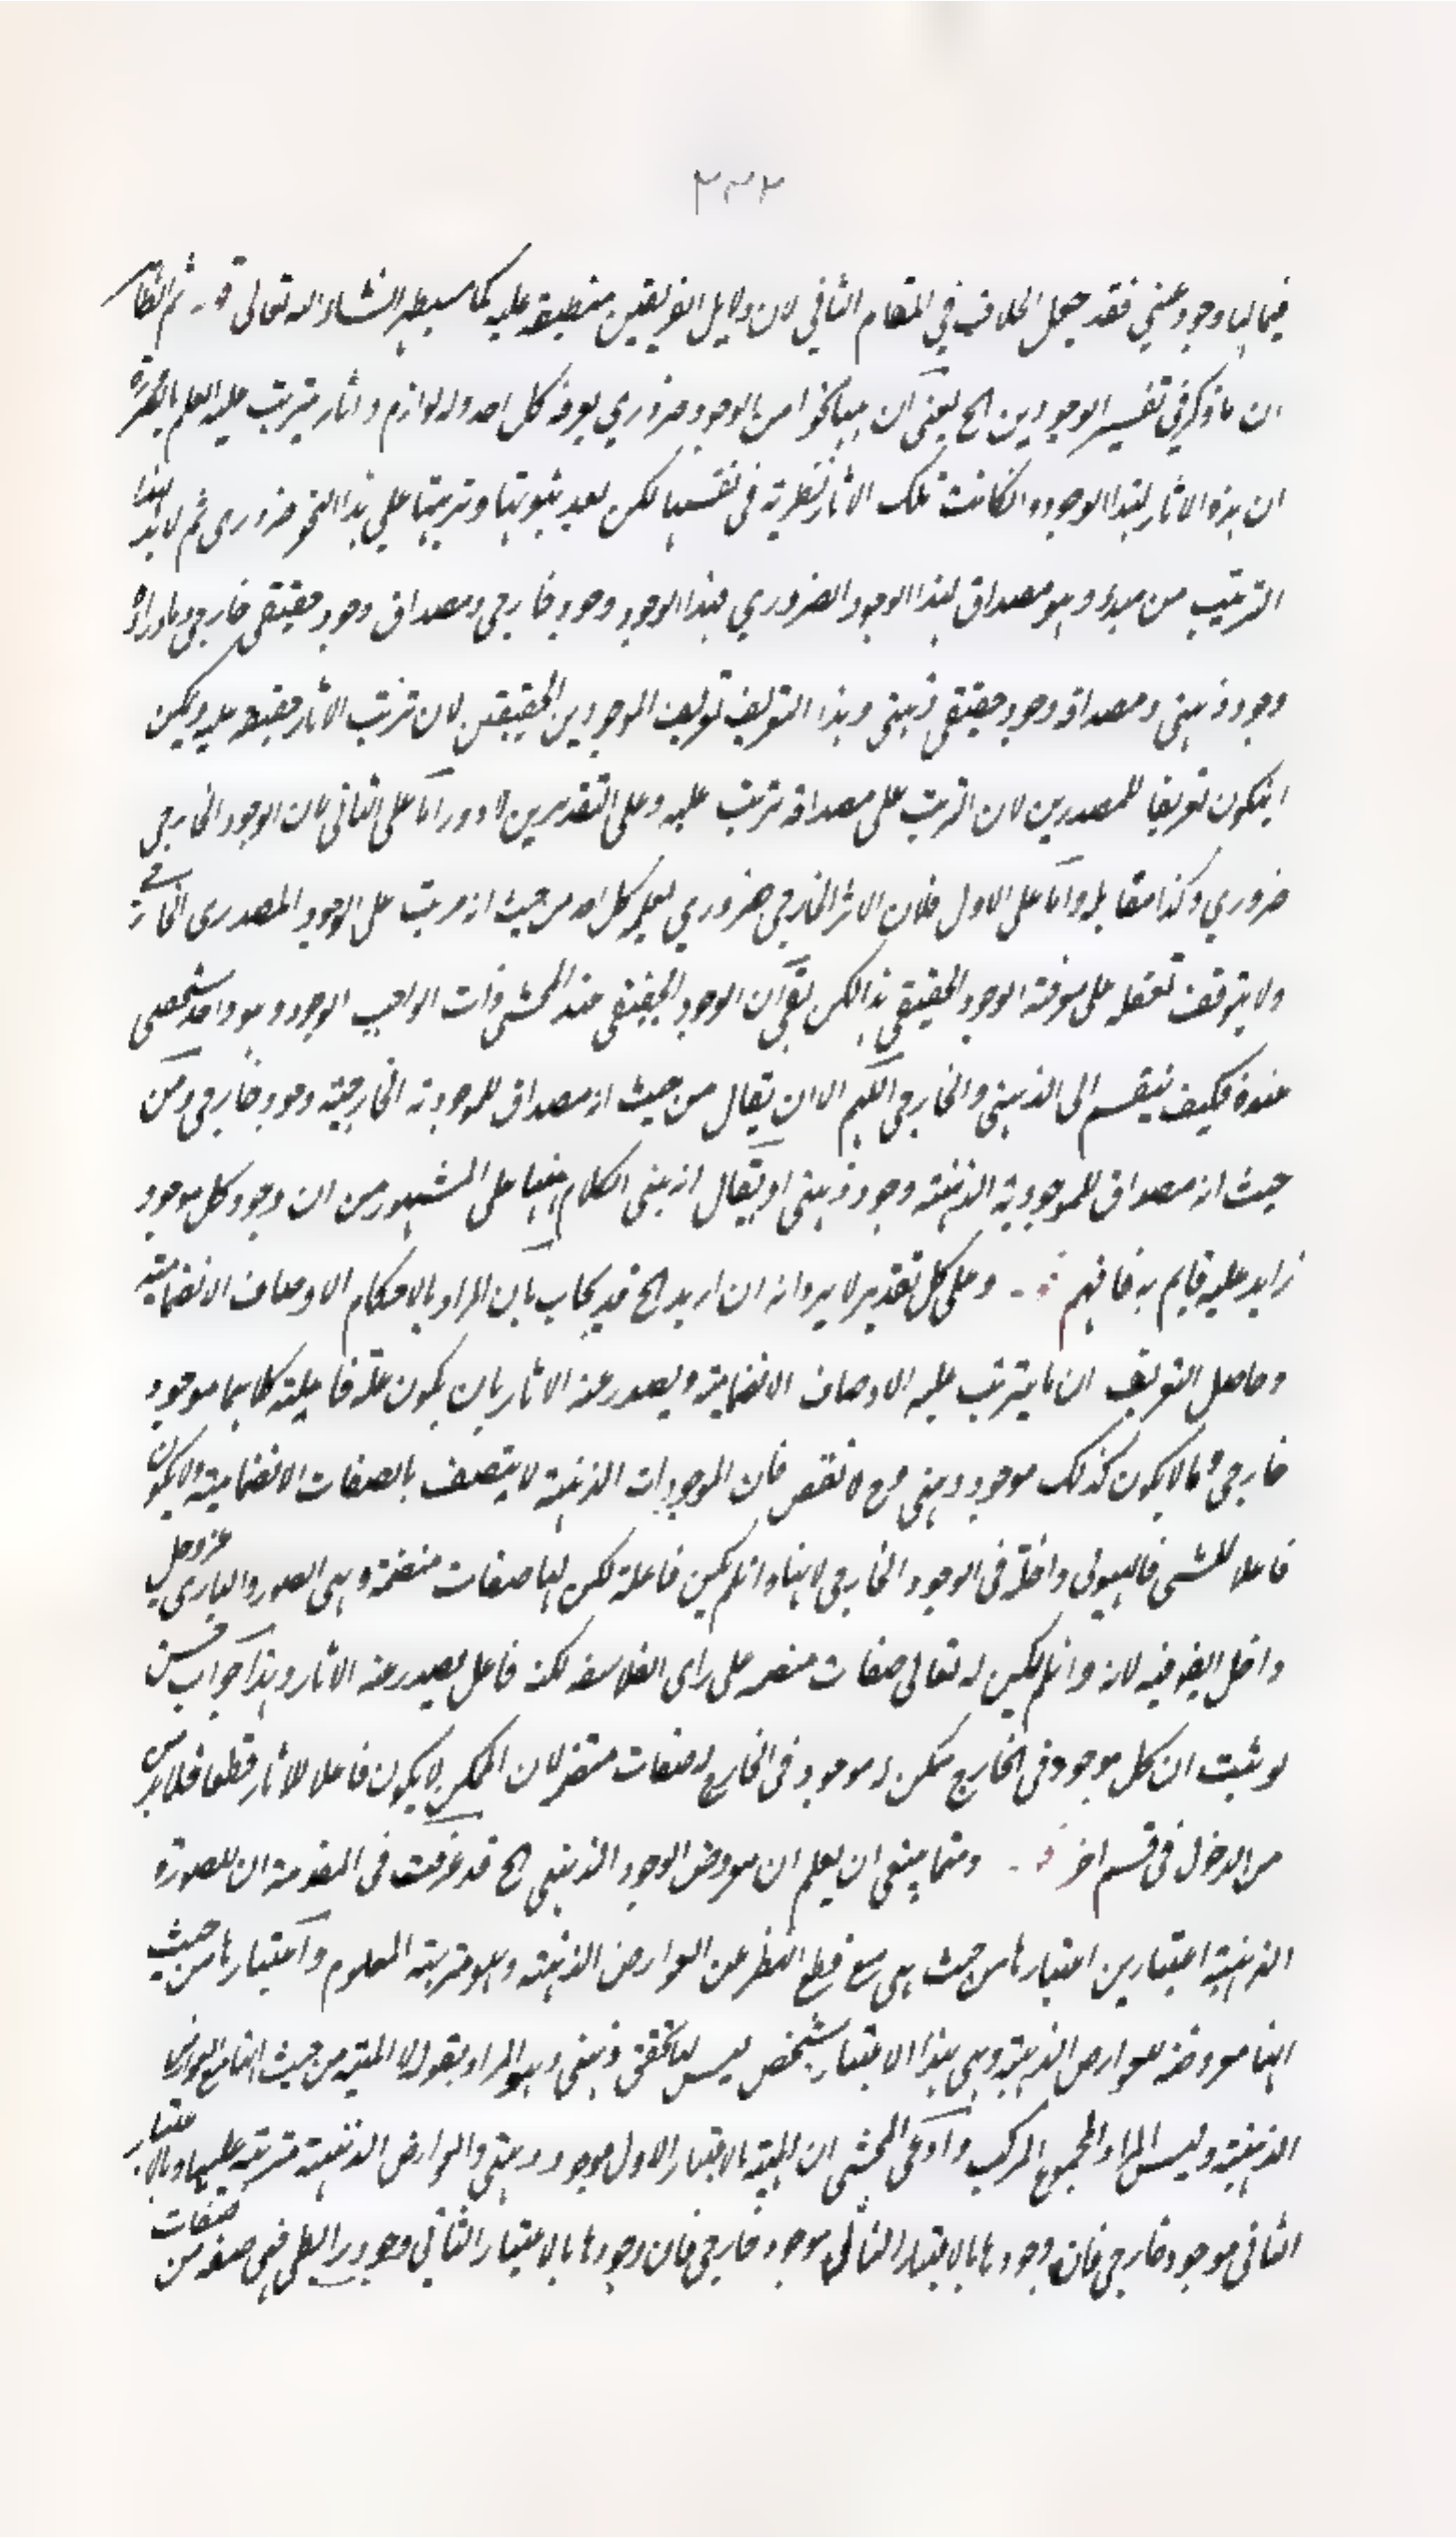 ٢٣٢
فيما لها وجود عيني فقد جعل الخلاف في المقام الثاني لان دلايل الفريقين منطبقة عليه كما سيظهر انشاء الله تعالى قوله ثم الظاهر
ان ما ذكر في تفسير الوجودين الخ يعني ان ههنا نحوا من الوجود ضروري يعرفه كل احد وله لوازم واثار يترتب عليه العلم بالضرورة
ان هذه الاثار لهذا الوجود وانكانت تلك الاثار نظرية في نفسها لكن بعد ثبوتها وترتبها على هذا النحو ضروري ثم لا بد لهذا
الترتيب من مبدء وهو مصداق لهذا الوجود الضروري فهذا الوجود وجود خارجي ومصداق وجود حقيقي خارجي وماوراءه
وجود ذهني ومصداقه وجود حقيقي ذهني وهذا التعريف تعريف الوجودين الحقيقين لان ترتب الاثار حقيقة عليه ويمكن
ايكون تعريفا للمصدرين لان الترتب على مصداقه ترتب عليه وعلى التقديرين لا دور اما على الثاني فان الوجود الخارجي
ضروري وكذا مقابله واما على الاول فلان الاثر الخارجي ضروري يعلم كل احد من حيث انه مرتب على الوجود المصدري الخارجي
ولا يتوقف تعقله على معرفة الوجود الحقيقي هذا لكن بقي ان الوجود الحقيقي عند المحشي ذات الواجب الوجود وهو واحد شخصي
عنده فكيف ينقسم الى الذهني والخارجي اللهم الا ان يقال من حيث انه مصداق للموجودية الخارجية وجود خارجي ومن
حيث انه مصداق للموجودية الذهنية وجود ذهني او يقال انه بني الكلام ههنا على المشهور من ان وجود كل موجود
زايد عليه قايم به فافهم قوله وعلى كل تقدير لا يرد انه ان اريد الخ قد يجاب بان المراد بالاحكام الاوصاف الانضمامية
وحاصل التعريف ان ما يترتب عليه الاوصاف الانضمامية ويصدر عنه الاثار بان يكون علة فاعلية كلاهما موجود
خارجي وما لا يكون كذلك موجود ذهني فح لا نقض فان الموجودات الذهنية لا يتصف بالصفات الانضمامية ولا يكون
فاعلا للشي فالهيولى داخلة في الوجود الخارجي لانها وانلم يكن فاعلة لكن لها صفات منضمة وهي الصور والباري عز وجل
داخل ايضا فيه لانه وانلم يكن له تعالى صفات منضمه على راى الفلاسفه لكنه فاعل يصدر عنه الاثار وهذا جواب حسن
لو ثبت ان كل موجود في الخارج ممكن له موجود في الخارج له صفات منضمة لان الممكن لا يكون فاعلا للاثار قطعا فلا بد من
من الدخول في قسم اخر قوله ومما ينبغي ان يعلم ان معروض الوجود الذهني الخ قد عرفت في المقدمة ان للصورة
الذهنية اعتبارين اعتبارها من حيث هي مع قطع النظر عن العوارض الذهنية وهو مرتبة المعلوم واعتبارها من حيث
انها معروضة للعوارض الذهنية وهي بهذا الاعتبار شخص ليس لها تحقق ذهني وهو المراد بقوله الماهية من حيث انها مع العوارض
الذهنية وليس المراد المجموع المركب وادعى المحشي ان الماهية بالاعتبار الاول موجود ذهني والعوارض الذهنية مترتبة عليها وبالاعتبار
الثاني موجود خارجي فان وجودها بالاعتبار الثاني موجود خارجي فان وجودها بالاعتبار الثاني وجود رابطي فهي صفة من صفات